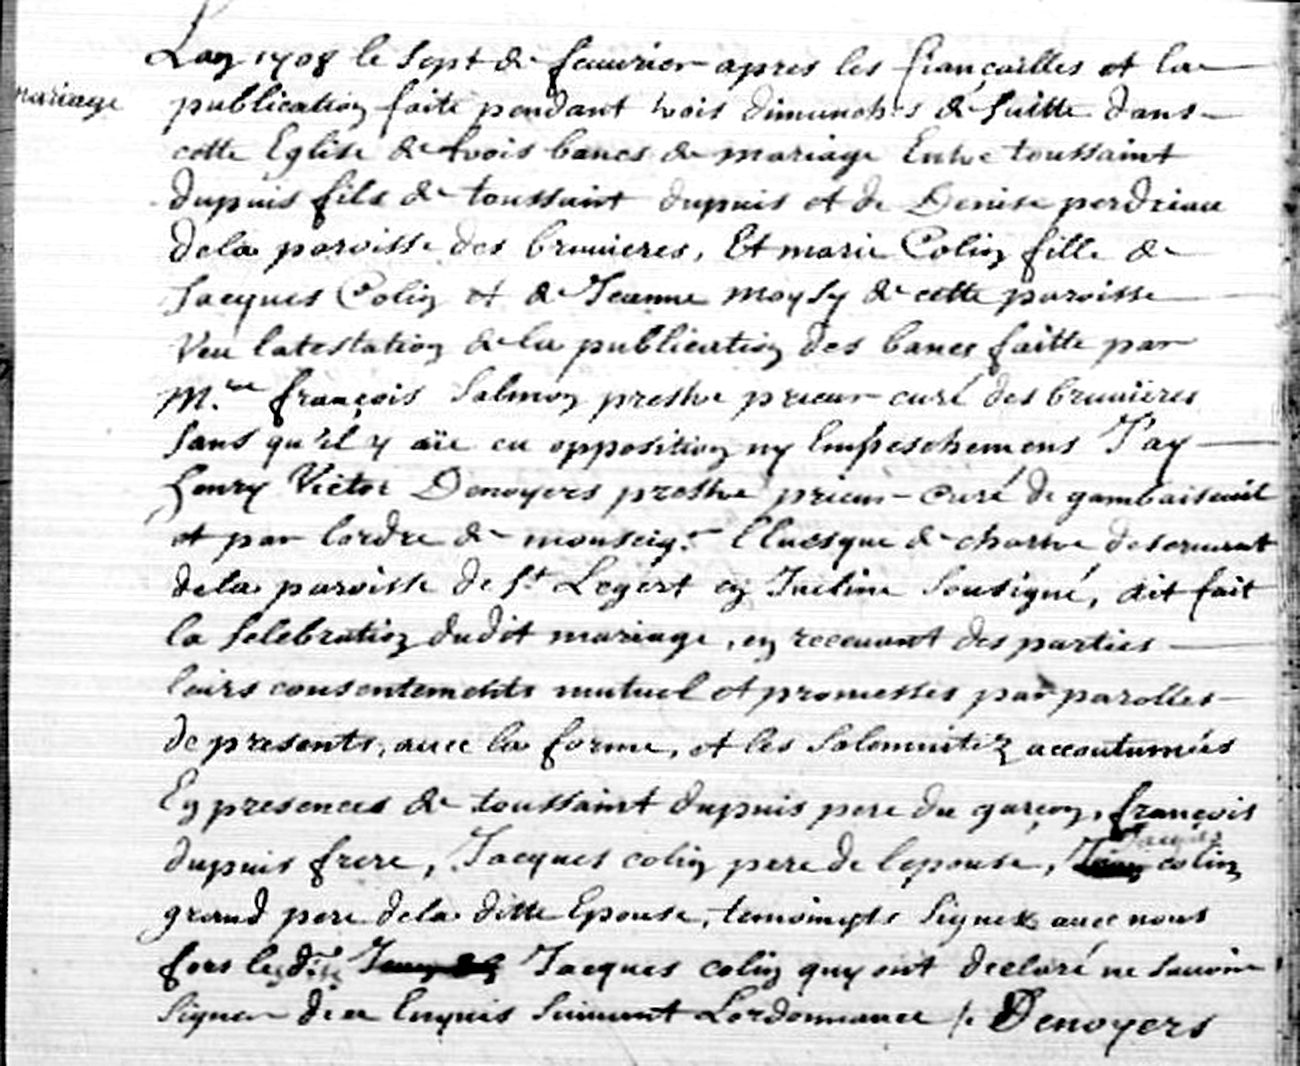 Lan 1708 le sept de feuurier apres les fiançailles et la
mariage
publication faite pendant trois dimanches de suitte dans
cette Eglise de trois bancs de mariage Entre toussaint
dupuis fils de toussaint dupuis et de Denise perdriau
dela paroisse des bruuieres, Et marie Colin fille de
Jacques Colin et de Jeanne moysy de cette paroisse
Veu latestation de la publication des bancs faitte par
M.re françois Salmon prestre prieur curé des bruuieres
sans qu'il y aïe eu opposition ny Empeschemens J'ay
henry Victor Denoyers prestre prieur curé de gambaiseuil
et par lordre de monseig.r lEuesque de chartre deseruant
dela paroisse de St Legert en Iueline sousigné, ait fait
la selebration dudit mariage, en receuant des parties
leurs consentements mutuel et promesses par parolles
de presents, auec la forme, et les solemnitez accoutumées
En presences de toussaint dupuis pere du garçon, françois
dupuis frere, Jacques colin pere de lepouse, Jacques colin
grand pere dela ditte Epouse, temoingts signez auec nous
fors lesdits Jacques colin quy ont declaré ne sauoir
signer de ce Enquis suiuant Lordonnance /. Denoyers